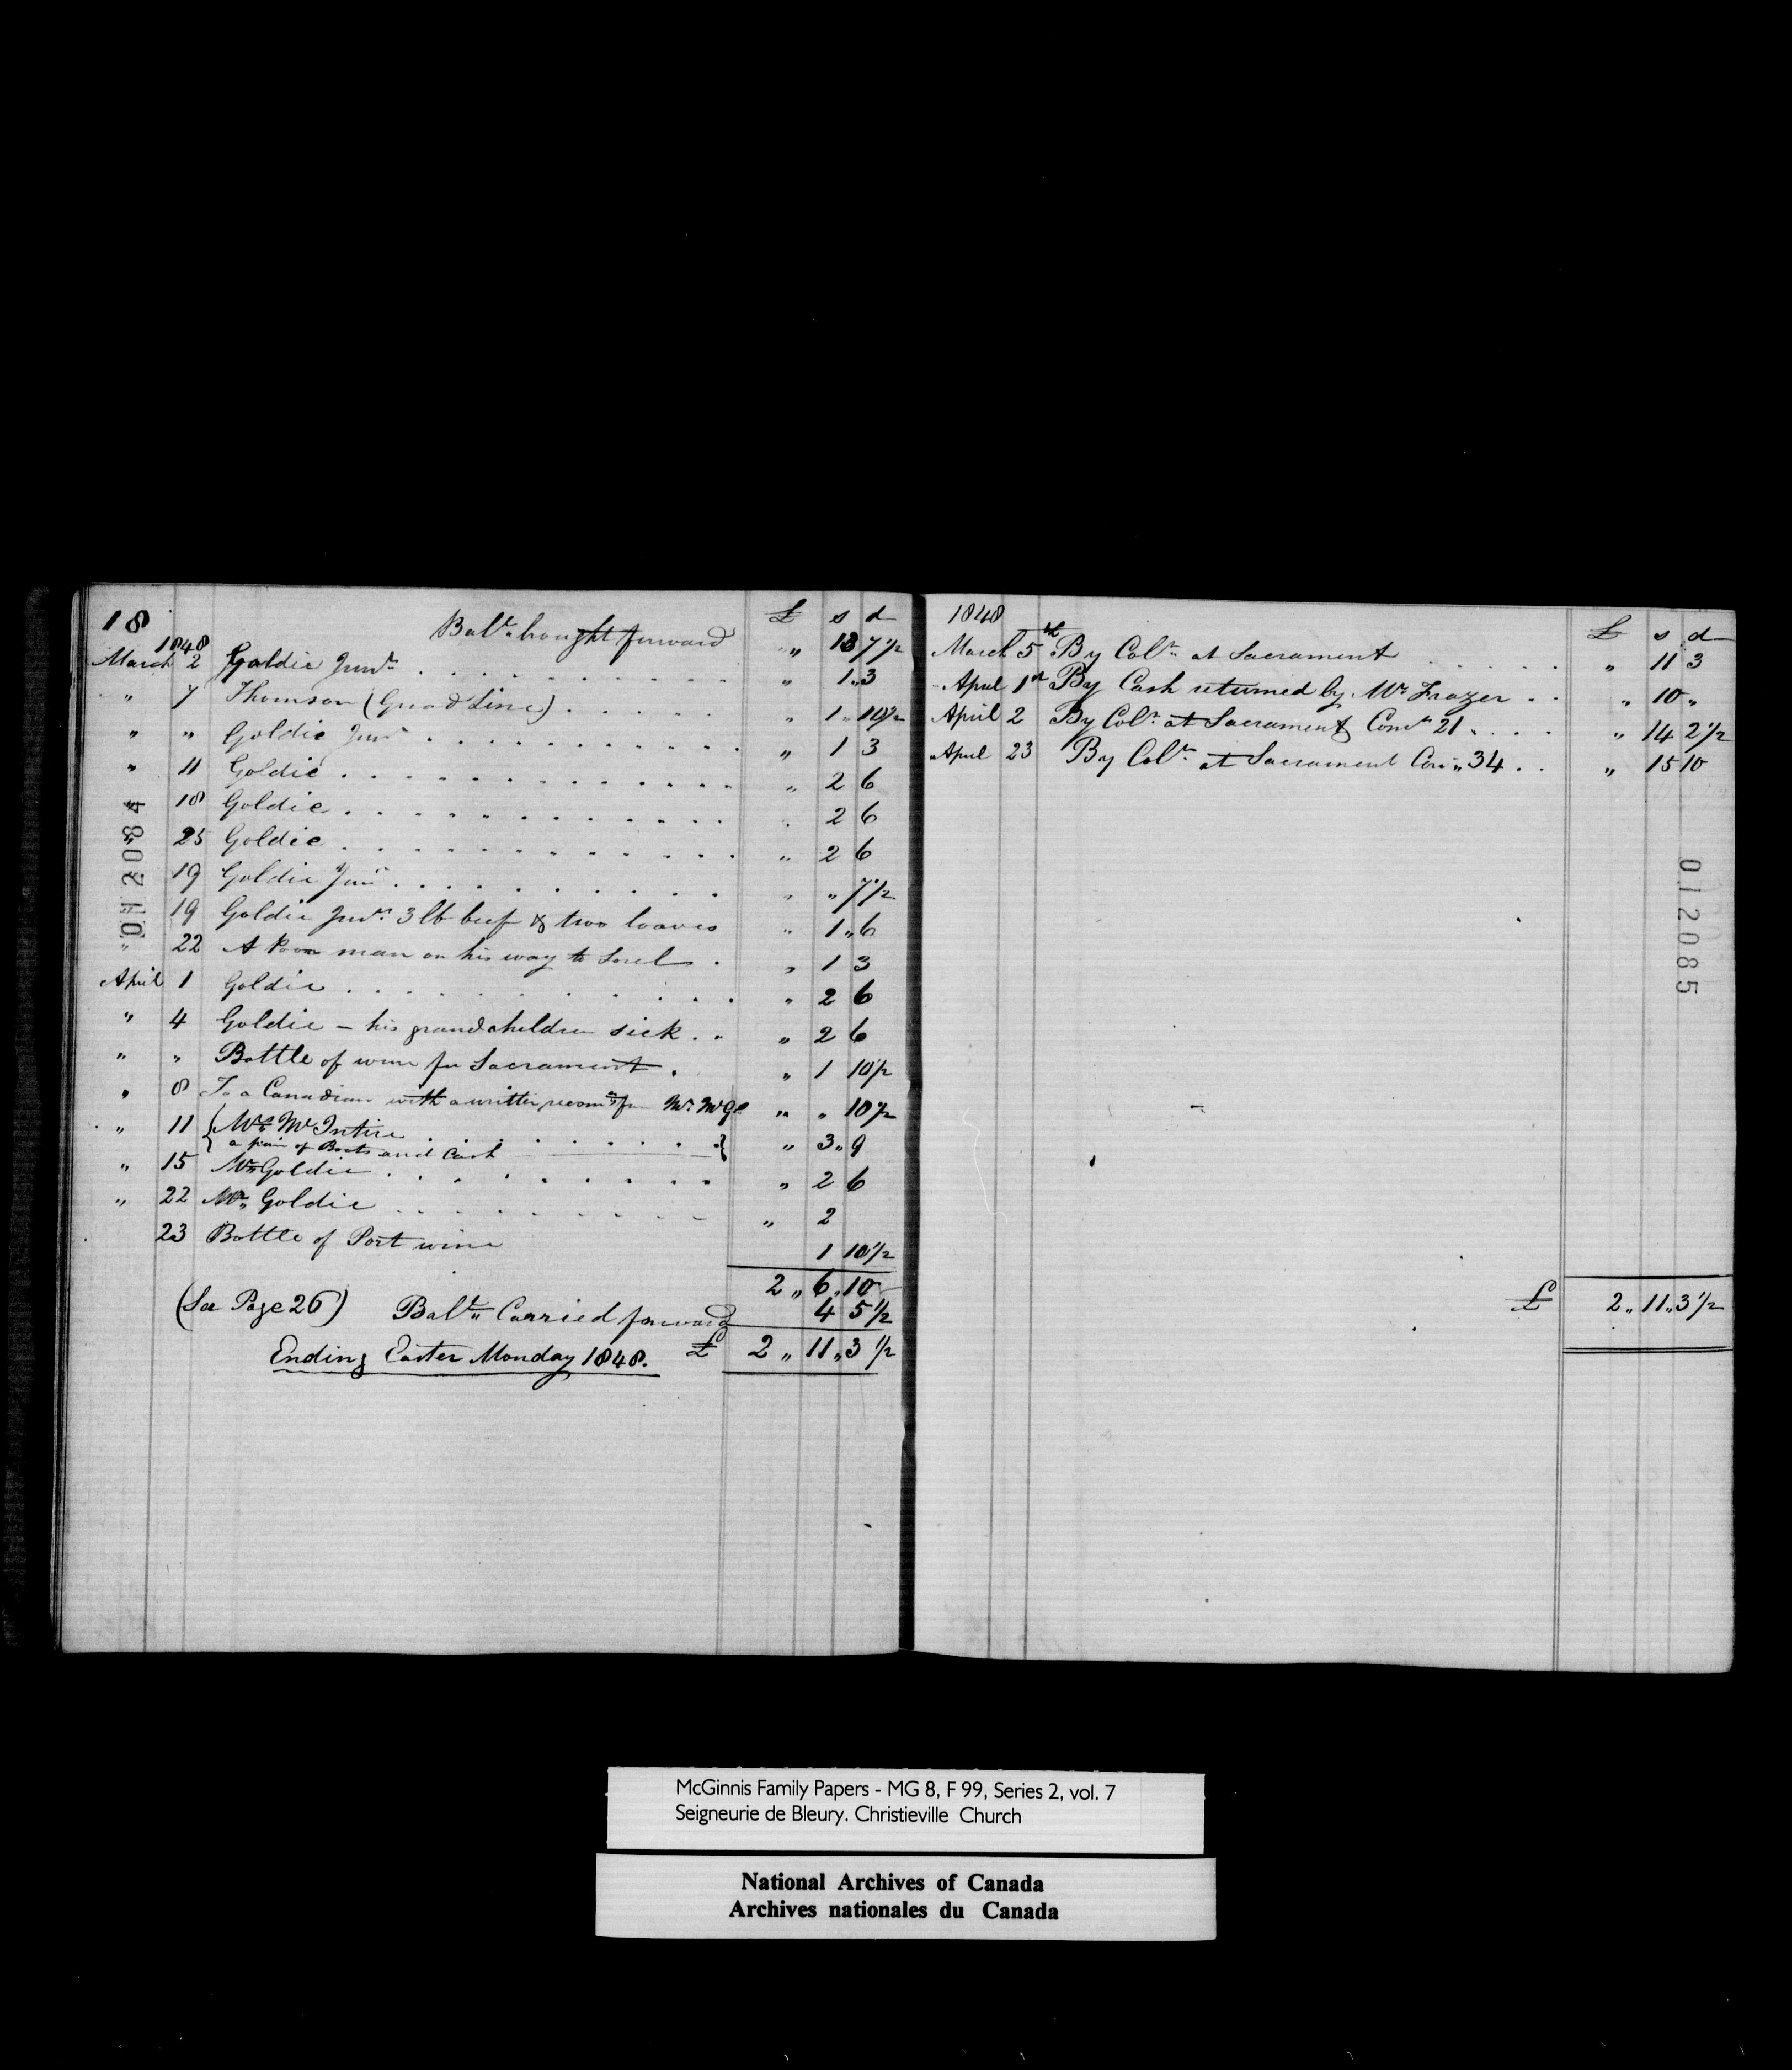 18
£ s d
Balce brought forward " 13 7½
1848
March 2 Goldie Junr . . . . . . . . . " 1"3
" 7 Thomson (Grand Line) . . . . . " 1"10½
" " Goldie Junr . . . . . . . . . . " 1 3
" 11 Goldie . . . . . . . . . . . . " 2 6
" 18 Goldie . . . . . . . . . . . . " 2 6
" 25 Goldie . . . . . . . . . . . . " 2 6
19 Goldie Junr . . . . . . . . . . " " 7½
19 Goldie Junr 3 lb beef & two loaves " 1"6
" 22 A Poor man on his way to Sorel . " 1 3
April 1 Goldie . . . . . . . . . . . " 2 6
" 4 Goldie - his grandchildren sick . . " 2 6
" " Bottle of wine for Sacrament . " 1 10½
" 8 To a Canadian with a written recomdn from Mr McG " " 10½
" 11 Mrs McIntire . . . . . . . . .
a pair of Boots and Cash " 3"9
" 15 Mr Goldie . . . . . . . . . " 2 6
" 22 Mr Goldie . . . . . . . . . " 2
23 Bottle of Port wine 1 10½
2 " 6 " 10
(See Page 26) Balce Carried forward 4 5½
Ending Easter Monday 1848. £ 2 " 11 " 3½
012084
1848
£ s d
March 5th By Coln at Sacrament . . . . . " 11 3
April 1st By Cash returned by Mr Frazer . . " 10 "
April 2 By Coln at Sacrament Comts 21 . . . . " 14 2½
April 23 By Coln at Sacrament Com" 34 . . " 15 10
£ 2 " 11 " 3½
012085
McGinnis Family Papers - MG 8, F 99, Series 2, vol. 7
Seigneurie de Bleury. Christieville Church
National Archives of Canada
Archives nationales du Canada